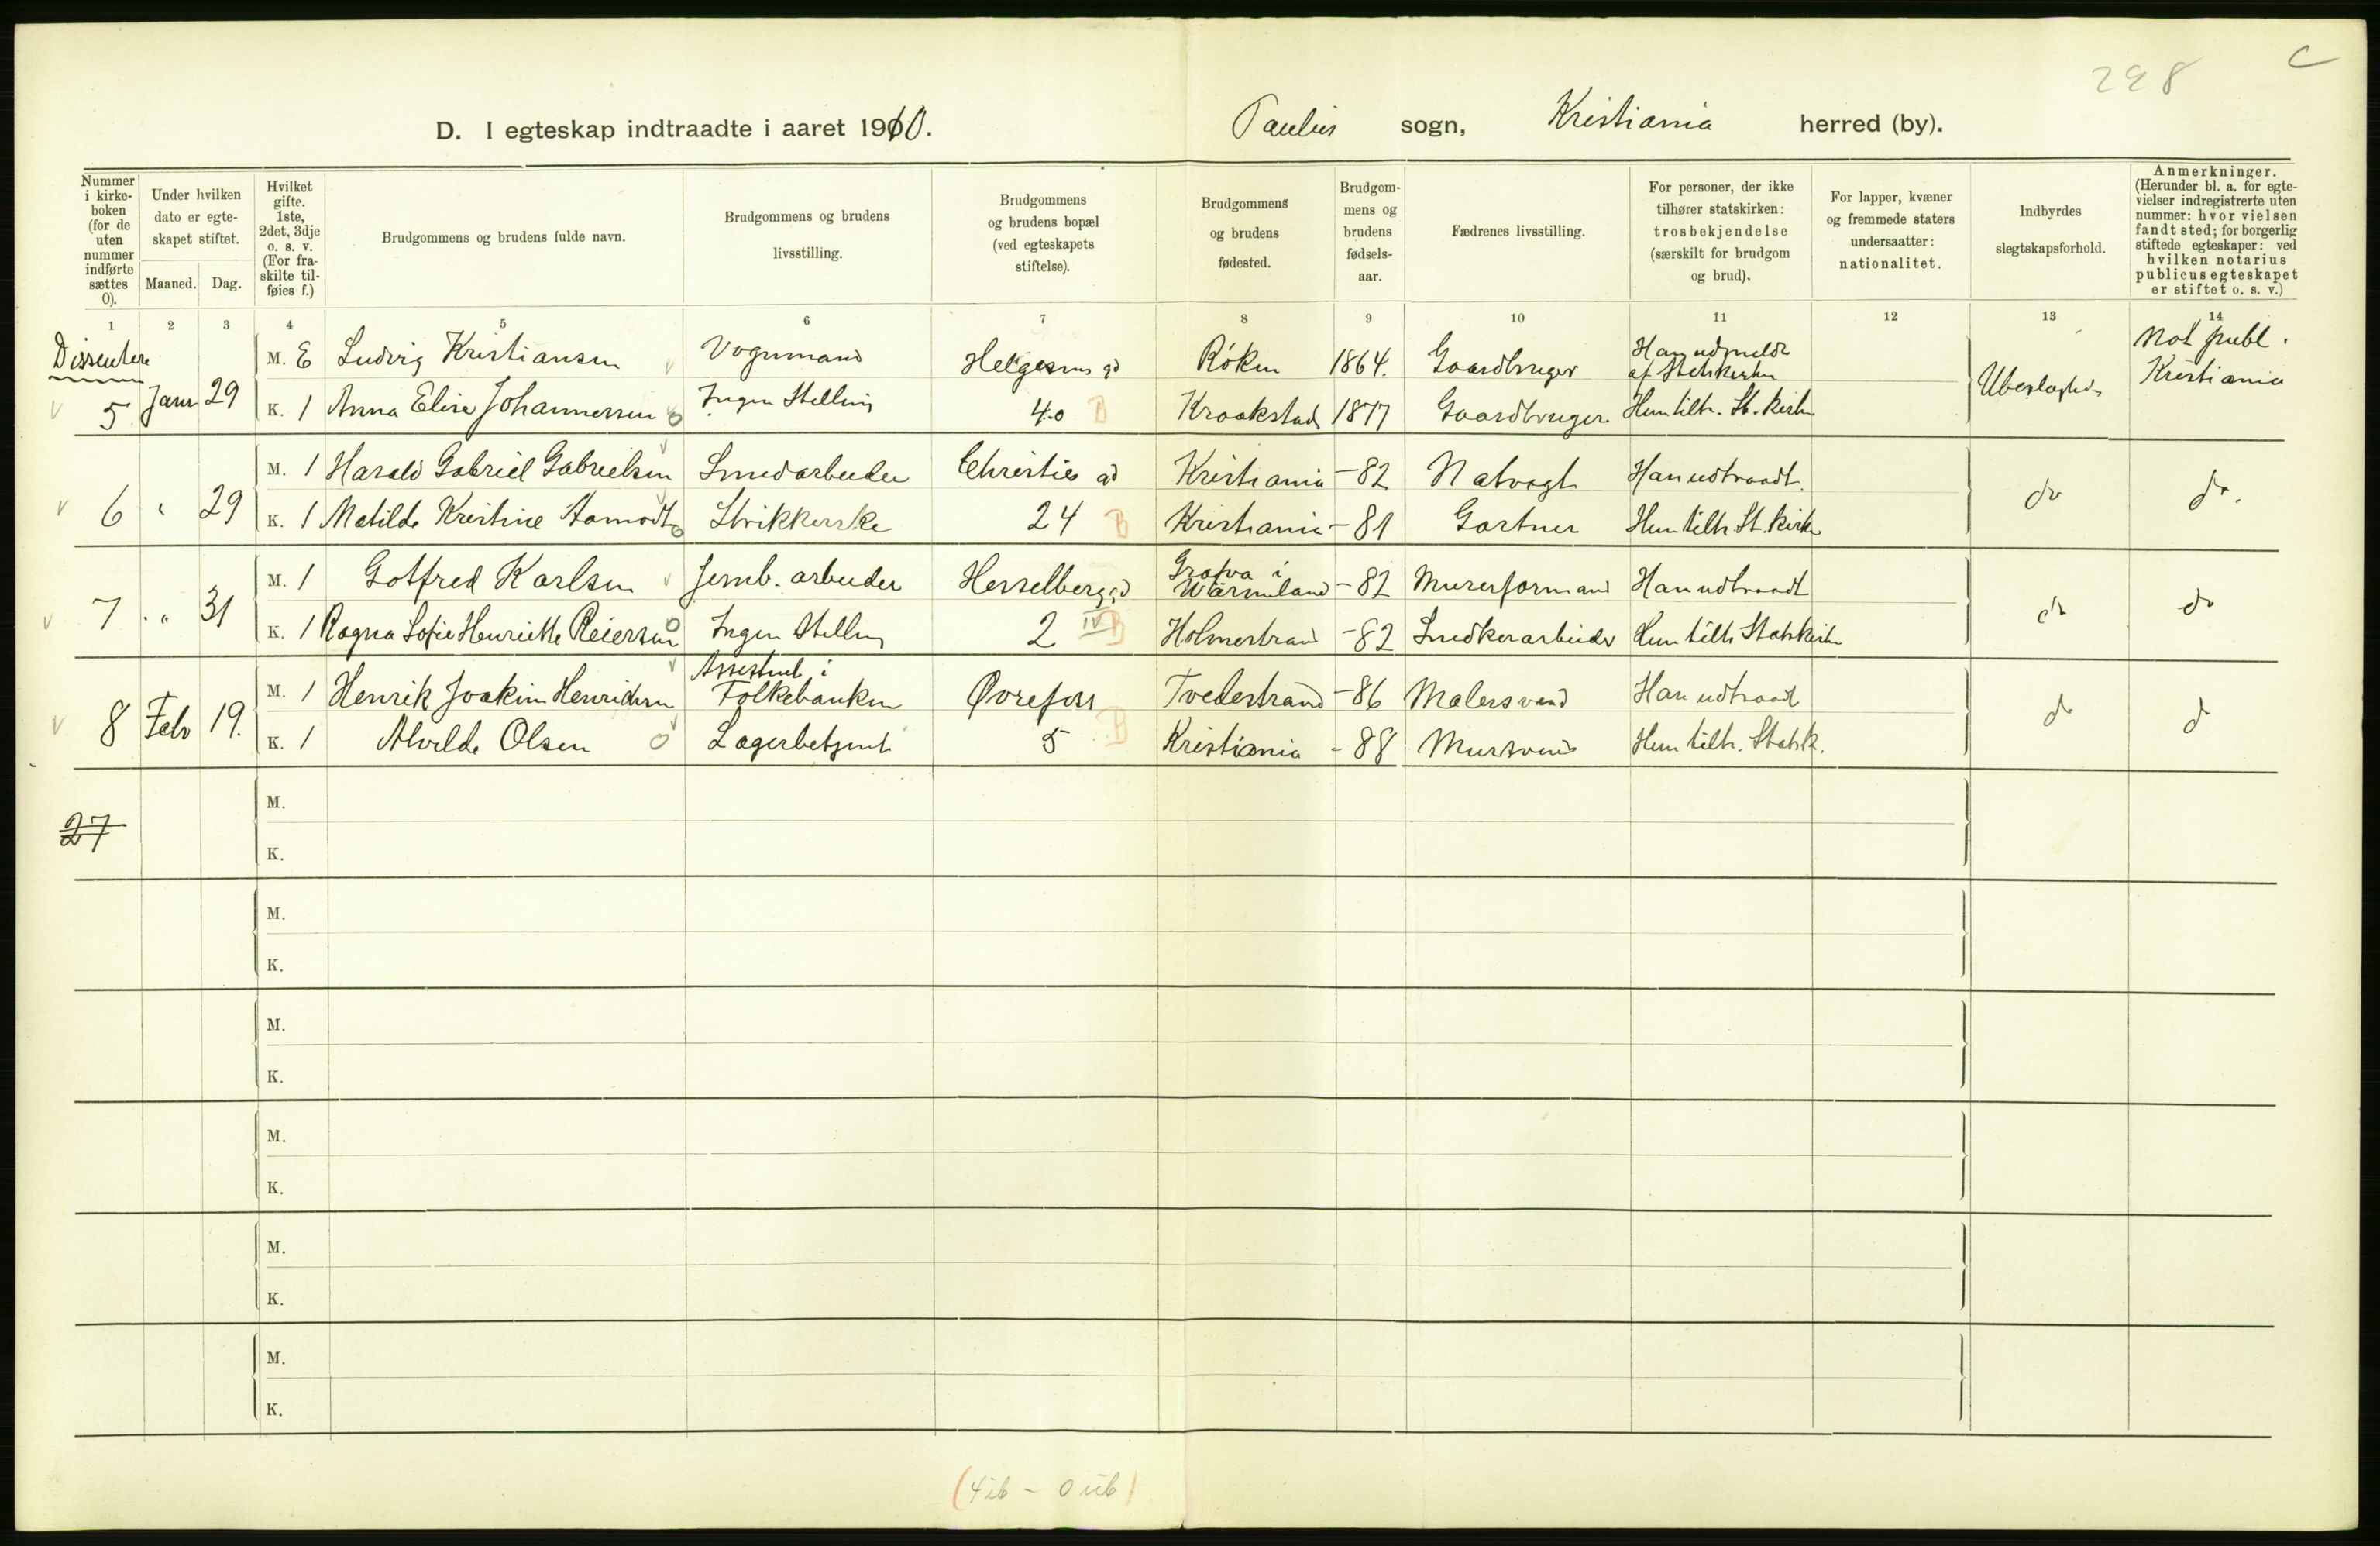 298
C
D. I egteskap indtraadte i aaret 1910. Paulus sogn, Kristiania herred (by).
Nummer i kirke-boken (for de uten nummer indførte sættes 0).
Under hvilken dato er egte-skapet stiftet.
Maaned. Dag.
Hvilket gifte. 1ste, 2det, 3dje o. s. v. (For fra-skilte til-føies f.)
Brudgommens og brudens fulde navn.
Brudgommens og brudens livsstilling.
Brudgommens og brudens bopæl (ved egteskapets stiftelse).
Brudgommens og brudens fødested.
Brudgom-mens og brudens fødsels-aar.
Fædrenes livsstilling.
For personer, der ikke tilhører statskirken: trosbekjendelse (særskilt for brudgom og brud).
For lapper, kvæner og fremmede staters undersaatter: nationalitet.
Indbyrdes slegtskapsforhold.
Anmerkninger. (Herunder bl. a. for egte-vielser indregistrerte uten nummer: hvor vielsen fandt sted; for borgerlig stiftede egteskaper: ved hvilken notarius publicus egteskapet er stiftet o. s. v.)
1 2 3 4 5 6 7 8 9 10 11 12 13 14
Dissentere
M. E Ludvig Kristiansen Vognmand Helgesens gd Røken 1864. Gaardbruger Han udmeldt af Statskirken Ubeslægtede Not publ. Kristiania
5 Janr 29 K. 1 Anna Elise Johannessen Ingen Stilling 40 B Kraakstad 1877 Gaardbruger Hun tilh. St. kirken
M. 1 Harald Gabriel Gabrielsen Smedarbeider Christies gd Kristiania - 82 Natvagt Han udtraadt. do do.
6 " 29 K. 1 Matilde Kristine Aamodt Strikkerske 24 B Kristiania - 81 Gartner Hun tilh St. kirken
M. 1 Gotfred Karlsen Jernb. arbeider Hesselberg gd Grafva i Wärmland - 82 Murerformand Han udtraadt do do
7 " 31 K. 1 Ragna Sofie Henriette Reiersen Ingen Stilling 2 IV B Holmestrand - 82 Snedkerarbeider Hun tilh Statskirken
M. 1 Henrik Joakim Henriksen Assistent i Folkebanken Øvrefoss Tvedestrand - 86 Malersvend Han udtraadt do do
8 Feb 19. K. 1 Alvilde Olsen Lagerbetjent 5 B Kristiania - 88 Mursvend Hun tilh. Statsk.
M.
27
K.
M.
K.
M.
K.
M.
K.
M.
K.
M.
K.
(4 ib - 0 uib)